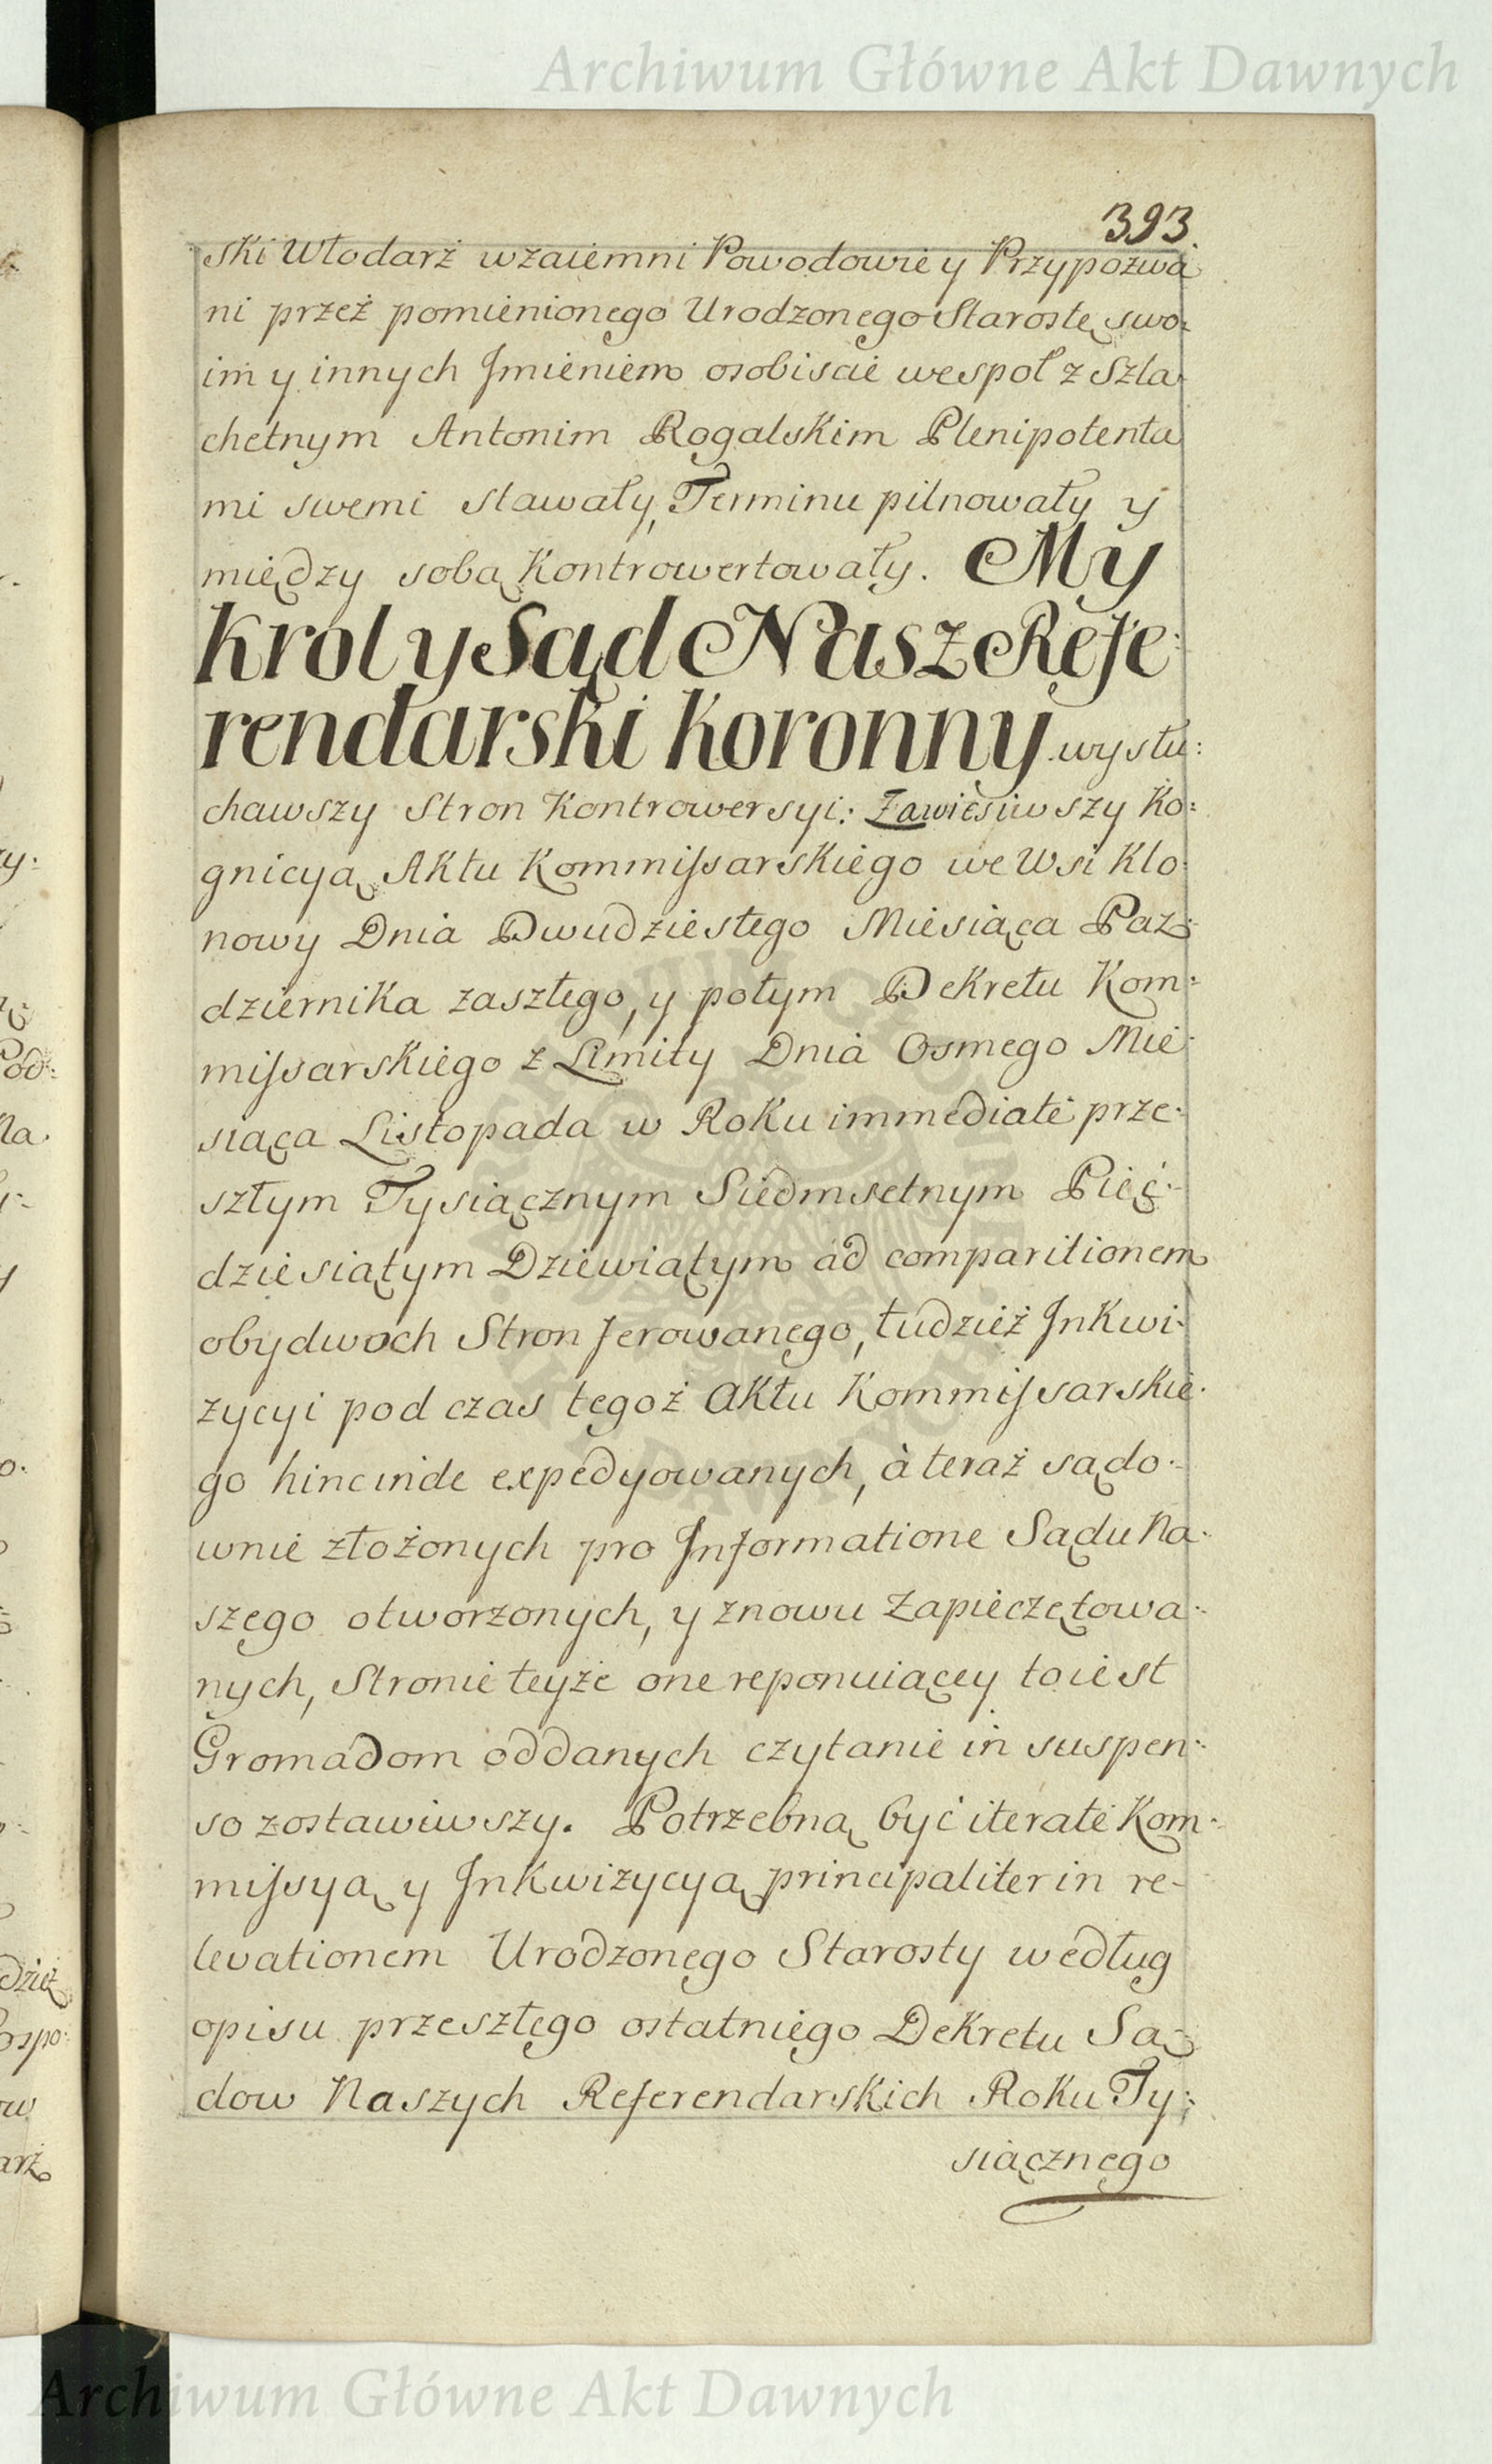 Archiwum Główne Akt Dawnych
393.
ski Włodarż wzaiemni Powodowie y Przypozwa
ni przeż pomienionego Urodzonego Starostę swo:
im y innych Jmieniem osobiscie wespoł z Szla
chetnym Antonim Rogalskim Plenipotenta
mi swemi stawały, Terminu pilnowały y
między sobą Kontrowertowały. My
Krol y Sąd Nasz Refe:
rendarski Koronny wysłu:
chawszy Stron Kontrowersyi: Zawiesiwszy Ko:
gnicyą Aktu Kommissarskiego we Wsi Klo:
nowy Dnia Dwudziestego Miesiąca Paz:
dziernika zaszłego, y potym Dekretu Kom:
missarskiego z Limity Dnia Osmego Mie:
siąca Listopada w Roku immediate prze:
szłym Tysiącznym Siedmsetnym Pięć:
dziesiątym Dziewiątym ad comparitionem
obydwoch Stron ferowanego, tudzież Jnkwi:
zycyi pod czas tegoż Aktu Kommissarskie:
go hincinde expedyowanych, à teraż sądo:
wnie złożonych pro Jnformatione Sądu Na:
szego otworzonych, y znowu Zapieczętowa:
nych, Stronie teyże one reponuiącey to iest
Gromadom oddanych czytanie in suspen:
so zostawiwszy. Potrzebną być iterate Kom:
missyą y Jnkwizycyą principaliter in re-
levationem Urodzonego Starosty według
opisu przeszłego ostatniego Dekretu Są:
dow Naszych Referendarskich Roku Ty:
siącznego
Archiwum Główne Akt Dawnych